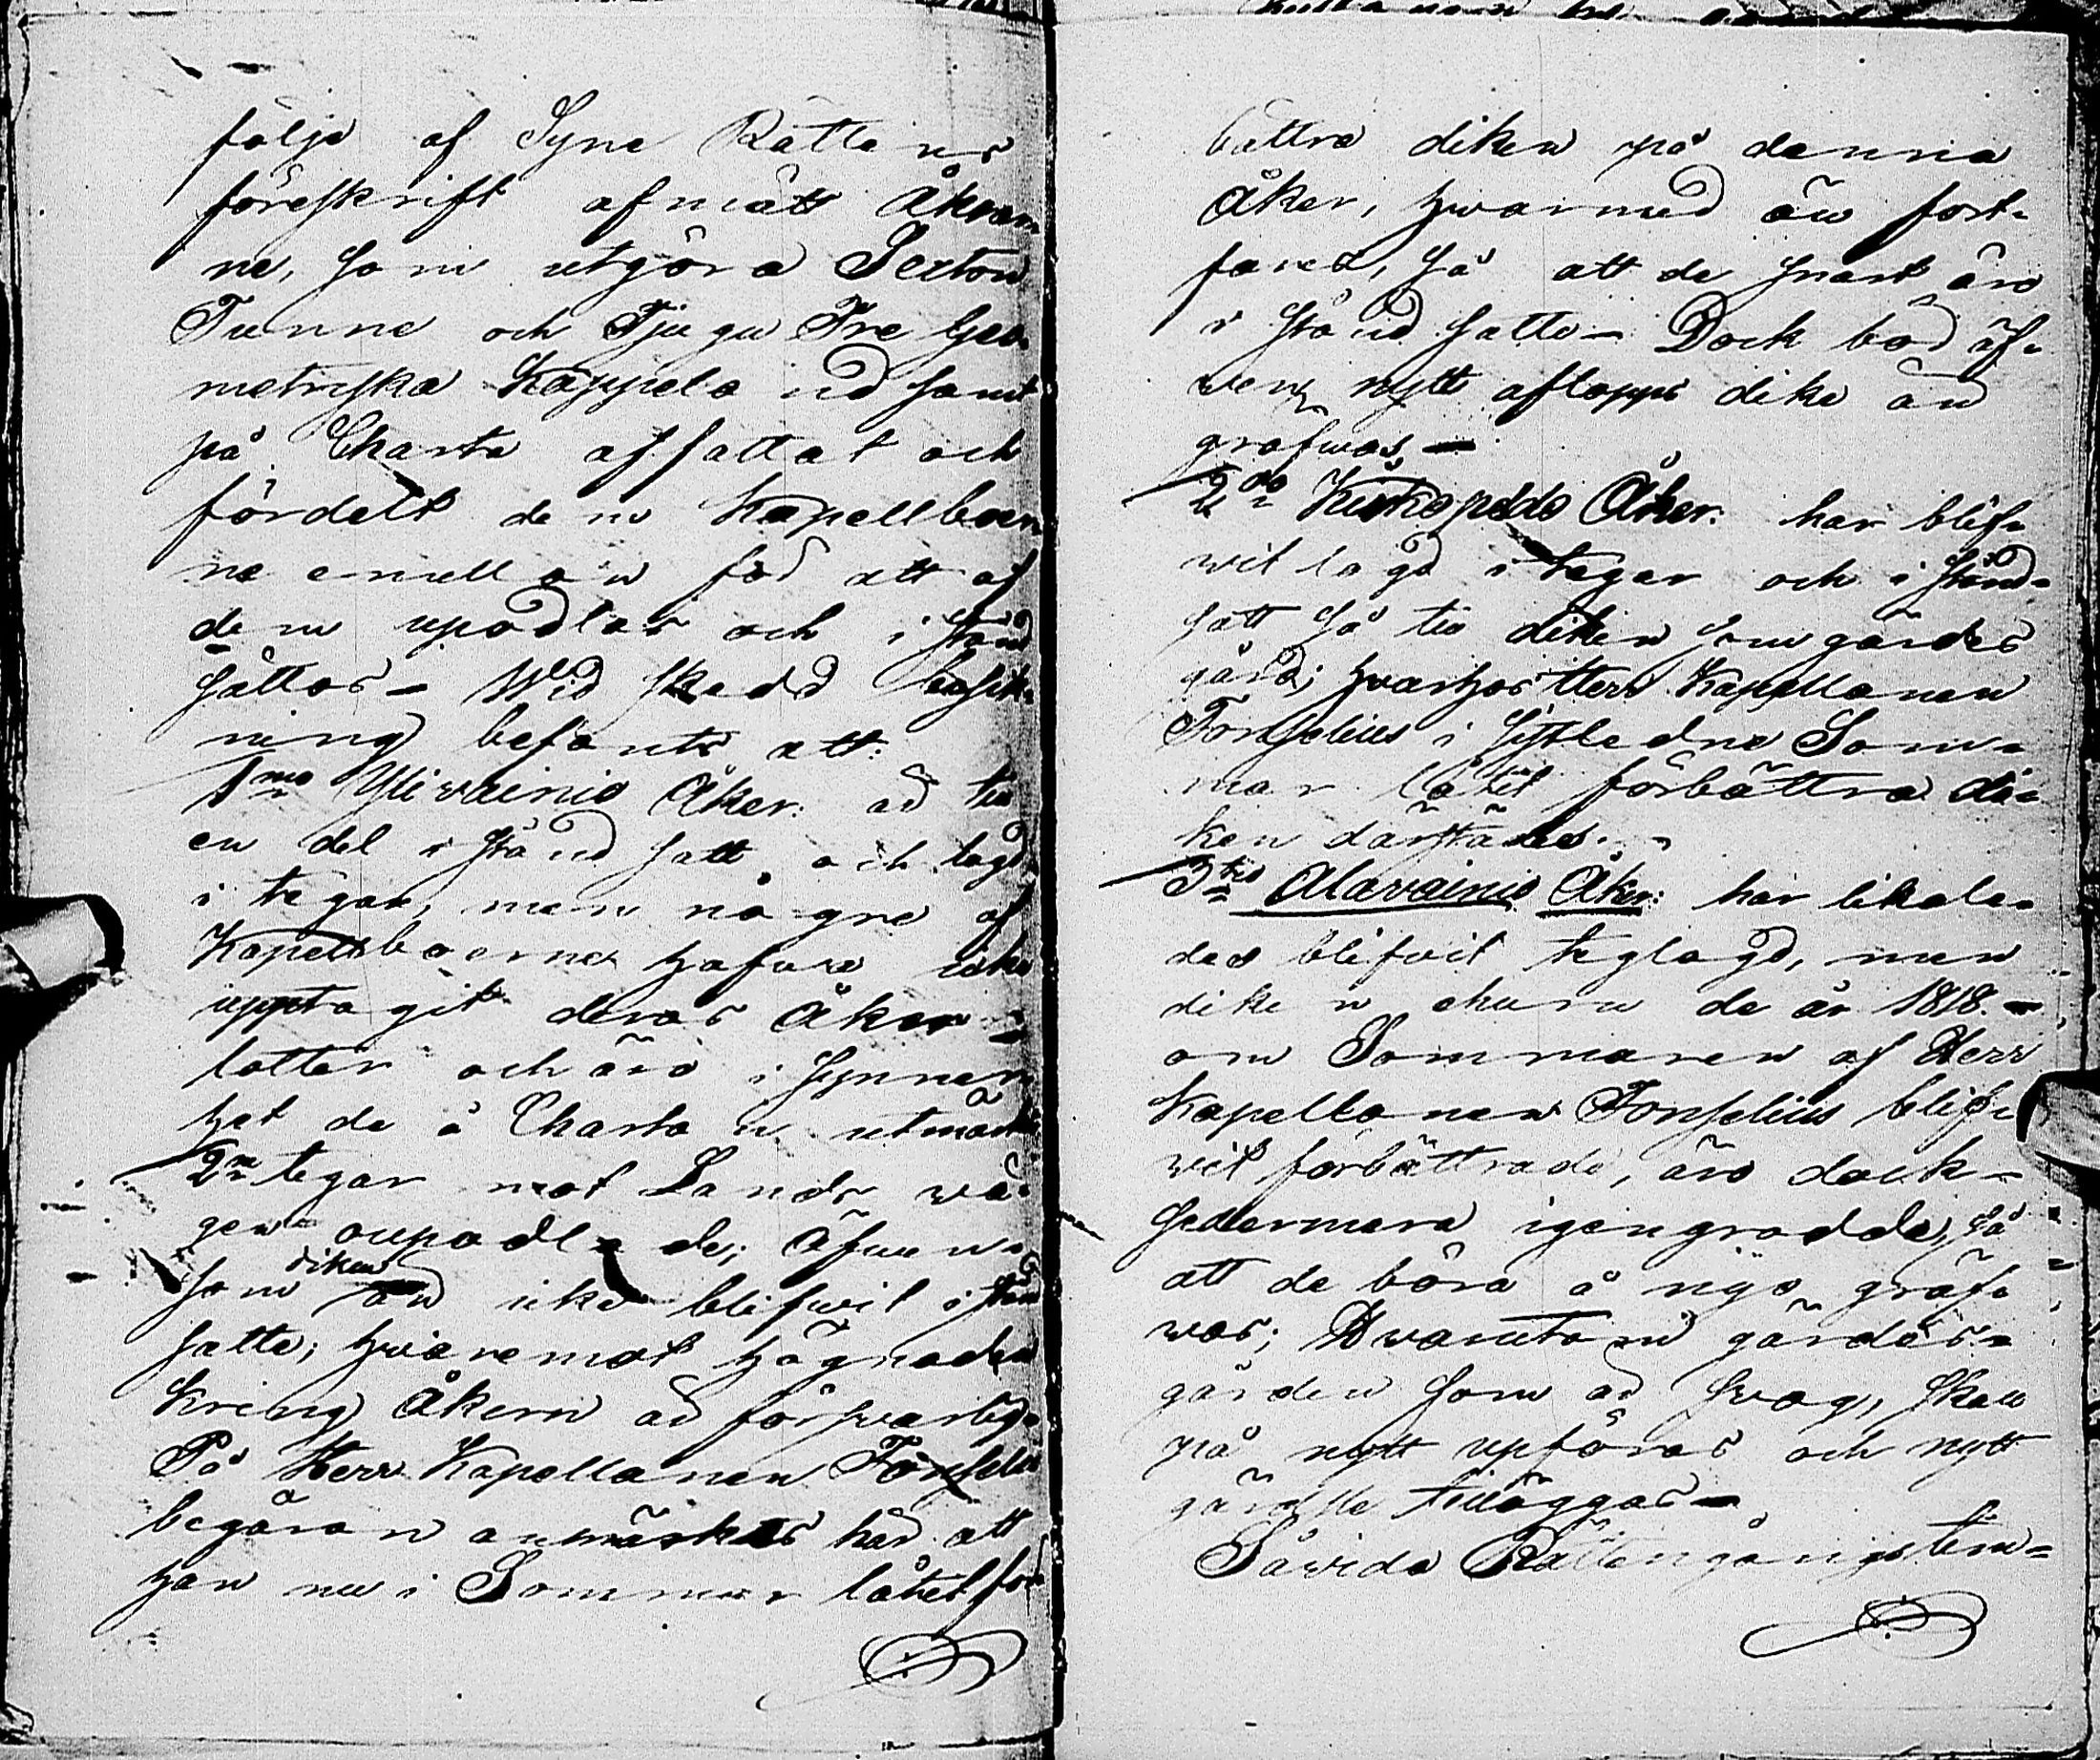 följe af Syne Rättens
föreskrift afmätt Åkrar-
ne, som utgöra Sexton
Tunne och Tjugu Tre Geo-
metriska Kappeland samt
på Charta affattat och
fördelt dem Kapellboer-
ne emellan för att af
dem upodlas och i stånd
sättas – Wid skedd besigt-
ning befants att:
1mo Ylivainio Åker: är til
en del i stånd satt och lagd
i tegar, men någre af
Kapellboerne hafwa icke
upptagit deras Åker-
lotter och äro i synner-
het de å Chartan utmärkte
2ne tegar mot Lands wä-
gen oupodlade; äfwen-
som diken än icke blifwit i stånd
satte; hwaremot hägnaden
kring Åkern är förswarlig.
På Herr Kapellanen Forselii
begäran anmärkes här att
han nu i Sommar låtit för-
bättra diken på denna
Åker, hwarmed än fort-
fares, så att de snart äro
i stånd satte – Dock bör äf-
wen nytt aflopps dike än
grafwas. –
2do Kirkopeldo Åker: har blif-
wit lagd i tegar och i stånd-
satt så til diken som gärdes
gård; hwarhos Herr Kapellanen
Forselius i sistledne Som-
mar låtit förbättra di-
ken därstädes. –
3tio Alavainio Åker: har likale-
des blifwit teglagd, men
diken ehuru de år 1818. –
om Sommaren af Herr
Kapellanen Forselius blif-
wit förbättrade, äro dock –
sedermera igengrodde, så
att de böra å nyo graf-
was; Hwarutom gärdes-
gården som är swag, skall
på nytt upföras och nytt
gärdsle tilläggas –
Såvida Rättengångs tim-